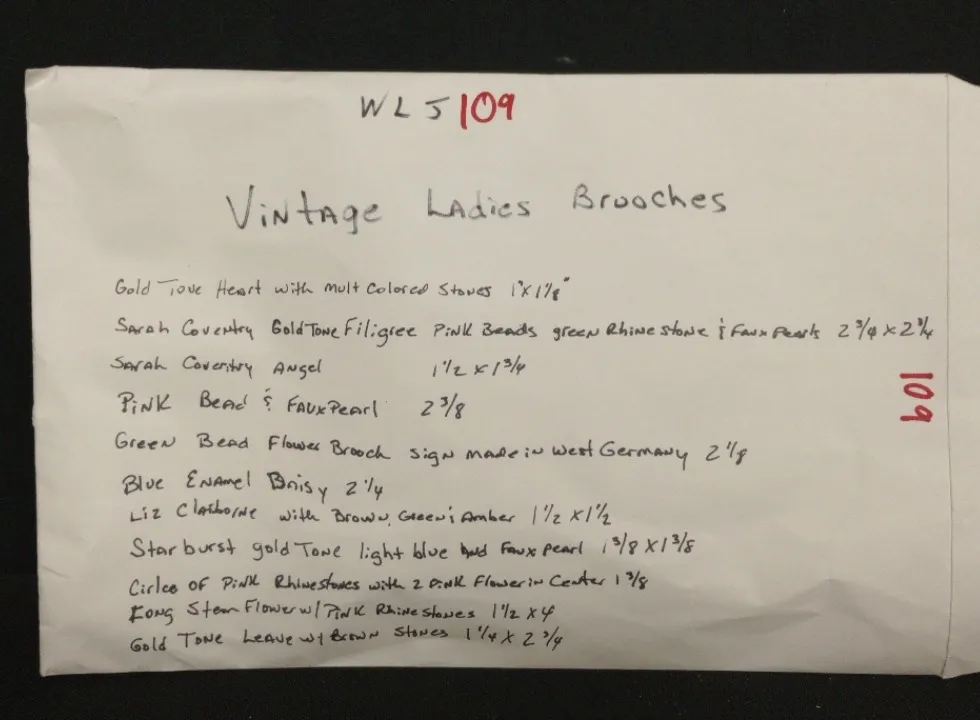 WLJ 109
Vintage Ladies Brooches
Gold Tone Heart with Mult Colored Stones 1" x 1 1/8"
Sarah Coventry Gold Tone Filigree Pink Beads green Rhinestone & Faux Pearls 2 3/4 x 2 3/4
Sarah Coventry Angel 1 1/2 x 1 3/4
109
Pink Bead & Faux Pearl 2 3/8
Green Bead Flower Brooch sign made in West Germany 2 1/8
Blue Enamel 2 1/4
Liz Claiborne with Brown, Green & Amber 1 1/2 x 1 1/2
Starburst gold Tone light blue and Faux pearl 1 3/8 x 1 3/8
Cirlce of Pink Rhinestones with 2 Pink Flower in Center 1 3/8
Long Stem Flower w/ Pink Rhinestones 1 1/2 x 4
Gold Tone Leave w/ Brown Stones 1 1/4 x 2 3/4